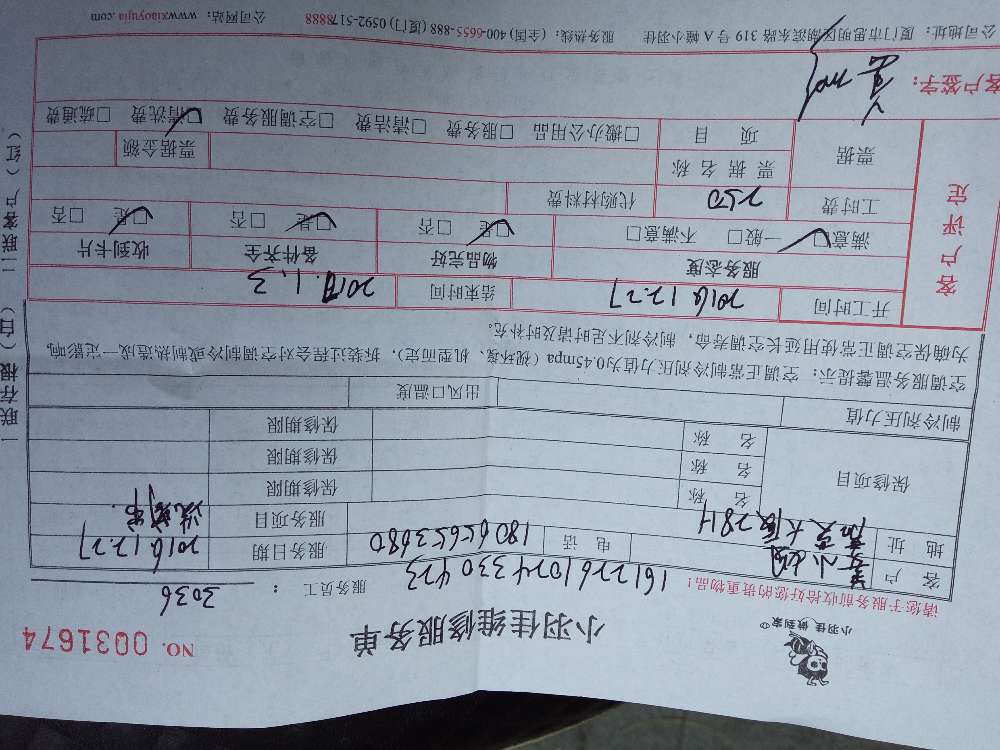 小羽佳 做到家
小羽佳维修服务单
NO. 0031674
请您于服务前收拾好您的贵重物品!
1612261074330423
服务员工 : 3036
客 户 小姐
电 话 18065653680
服务日期 2016.12.27
地 址 大厦2814
服务项目 洗窗帘
保修项目
名 称
保修期限
名 称
保修期限
名 称
保修期限
制冷剂压力值
出风口温度
空调服务温馨提示: 空调正常制冷剂压力值为0.45mpa (视环境、机型而定), 拆装过程会对空调制冷或制热造成一定影响,
为确保空调正常使用延长空调寿命, 制冷剂不足时请及时补充。
客户评定
开工时间 2016.12.27
结束时间 2017.1.3
服务态度
物品完好
备件齐全
收到卡片
满意□ 一般□ 不满意□
□是 □否
□是 □否
□是 □否
工时费 250
代购材料费
票据
票 据 名 称
票据金额
项 目
□搬办公用品 □服务费 □清洁费 □空调服务费 □清洗费 □疏通费
客户签字:
公司地址: 厦门市思明区湖滨东路 319 号 A 幢小羽佳 服务热线: (全国) 400-6655-888 (厦门) 0592-5178888 公司网站: www.xiaoyujia.com
一联存根(白) 二联客户(红)